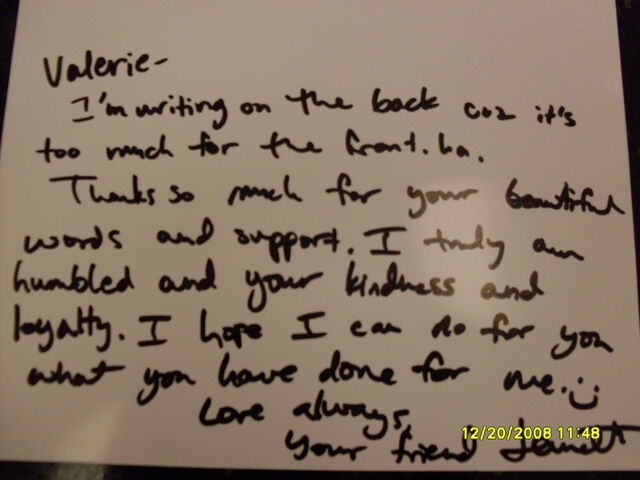 Valerie-
I'm writing on the back cuz it's
too much for the front. ha.
Thanks so much for your beautiful
words and support. I truly am
humbled and your kindness and
loyalty. I hope I can do for you
what you have done for me. :)
Love always,
your friend
12/20/2008 11:48